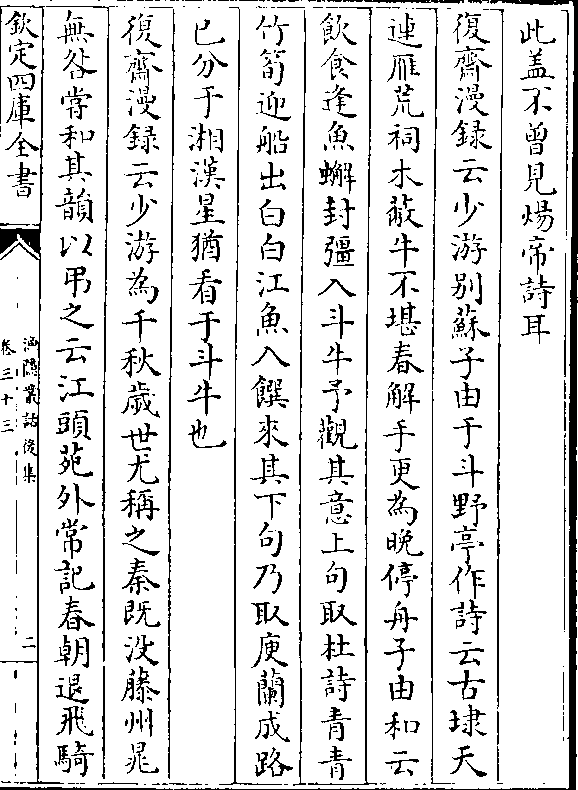 此盖不曽見煬帝詩耳
復齋漫録云少游别蘇子由于斗野亭作詩云古埭天
連雁荒祠木蔽牛不堪春解手更為晚停舟子由和云
飲食逢魚蠏封疆入斗牛予觀其意上句取杜詩青青
竹筍迎船出白白江魚入饌來其下句乃取庾蘭成路
已分于湘漢星猶看于斗牛也
復齋漫録云少游為千秋歲世尤稱之秦既没滕州晁
無咎嘗和其韻以弔之云江頭苑外常記春朝退飛騎
欽定四庫全書
漁隱叢話後集
卷三十三
二